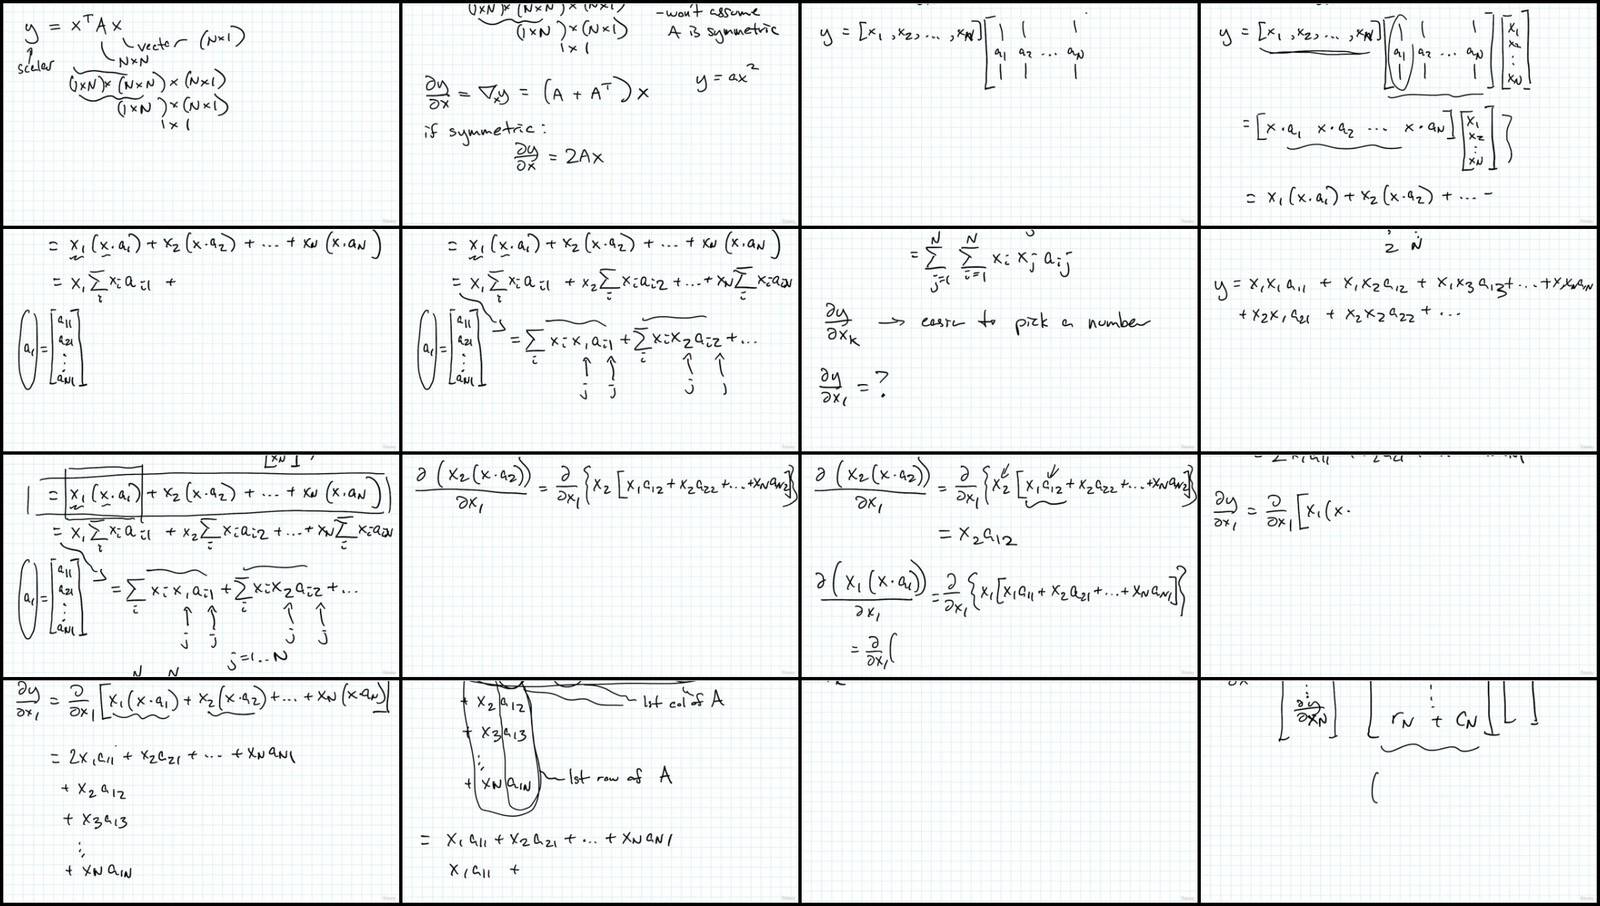 y = xᵀAx
vector (N×1)
scalar
N×N
(1×N)×(N×N)×(N×1)
(1×N)×(N×1)
1×1
(1×N)×(N×N)×(N×1)
(1×N)×(N×1)
1×1
-won't assume
A is symmetric
∂y/∂x = ∇ₓy = (A + Aᵀ)x
y = ax²
if symmetric:
∂y/∂x = 2Ax
y = [x₁, x₂, ..., x_N] [a₁ a₂ ... a_N]
y = [x₁, x₂, ..., x_N] [a₁ a₂ ... a_N] [x₁ x₂ ⋮ x_N]
= [x·a₁ x·a₂ ... x·a_N] [x₁ x₂ ⋮ x_N]
= x₁(x·a₁) + x₂(x·a₂) + ...
= x₁(x·a₁) + x₂(x·a₂) + ... + x_N(x·a_N)
= x₁ Σᵢ xᵢaᵢ₁ +
a₁ = [a₁₁ a₂₁ ⋮ a_N1]
= x₁(x·a₁) + x₂(x·a₂) + ... + x_N(x·a_N)
= x₁ Σᵢ xᵢaᵢ₁ + x₂ Σᵢ xᵢaᵢ₂ + ... + x_N Σᵢ xᵢaᵢN
a₁ = [a₁₁ a₂₁ ⋮ a_N1]
= Σᵢ xᵢx₁aᵢ₁ + Σᵢ xᵢx₂aᵢ₂ + ...
j j j j
= Σ_{j=1}^N Σ_{i=1}^N xᵢ xⱼ aᵢⱼ
∂y/∂x_k → easier to pick a number
∂y/∂x₁ = ?
y = x₁x₁a₁₁ + x₁x₂a₁₂ + x₁x₃a₁₃ + ... + x₁x_Na_1N
+ x₂x₁a₂₁ + x₂x₂a₂₂ + ...
= x₁(x·a₁) + x₂(x·a₂) + ... + x_N(x·a_N)
= x₁ Σᵢ xᵢaᵢ₁ + x₂ Σᵢ xᵢaᵢ₂ + ... + x_N Σᵢ xᵢaᵢN
a₁ = [a₁₁ a₂₁ ⋮ a_N1]
= Σᵢ xᵢx₁aᵢ₁ + Σᵢ xᵢx₂aᵢ₂ + ...
j j j j
j=1..N
∂(x₂(x·a₂))/∂x₁ = ∂/∂x₁ {x₂[x₁a₁₂ + x₂a₂₂ + ... + x_Na_N2]}
∂(x₂(x·a₂))/∂x₁ = ∂/∂x₁ {x₂[x₁a₁₂ + x₂a₂₂ + ... + x_Na_N2]}
= x₂a₁₂
∂(x₁(x·a₁))/∂x₁ = ∂/∂x₁ {x₁[x₁a₁₁ + x₂a₂₁ + ... + x_Na_N1]}
= ∂/∂x₁(
∂y/∂x₁ = ∂/∂x₁ [x₁(x·
∂y/∂x₁ = ∂/∂x₁ [x₁(x·a₁) + x₂(x·a₂) + ... + x_N(x·a_N)]
= 2x₁a₁₁ + x₂a₂₁ + ... + x_Na_N1
+ x₂a₁₂
+ x₃a₁₃
⋮
+ x_Na_1N
+ x₂a₁₂
1st col of A
+ x₃a₁₃
⋮
+ x_Na_1N
1st row of A
= x₁a₁₁ + x₂a₂₁ + ... + x_Na_N1
x₁a₁₁ +
[⋮ ∂y/∂x_N] [⋮ r_N + c_N] [ ]
(